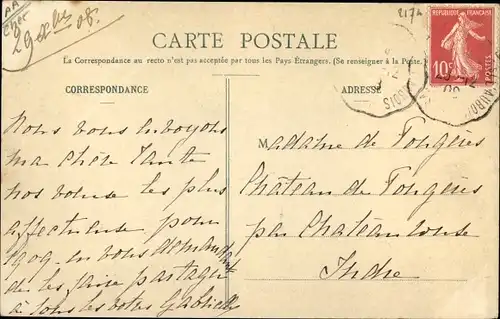 AA
Cher
29 Xbre 08.
2174
CARTE POSTALE
La Correspondance au recto n'est pas acceptée par tous les Pays Étrangers. (Se renseigner à la Poste.)
CORRESPONDANCE
ADRESSE
REPUBLIQUE FRANÇAISE
10c
POSTES
Nous vous envoyons
ma chère Tante
nos voeux les plus
affectueux pour
1909 en vous demandant
de les faire partager
à tous les vôtres Gabrielle
Madame de Fougères
Château de Fougères
par Châteauroux
Indre